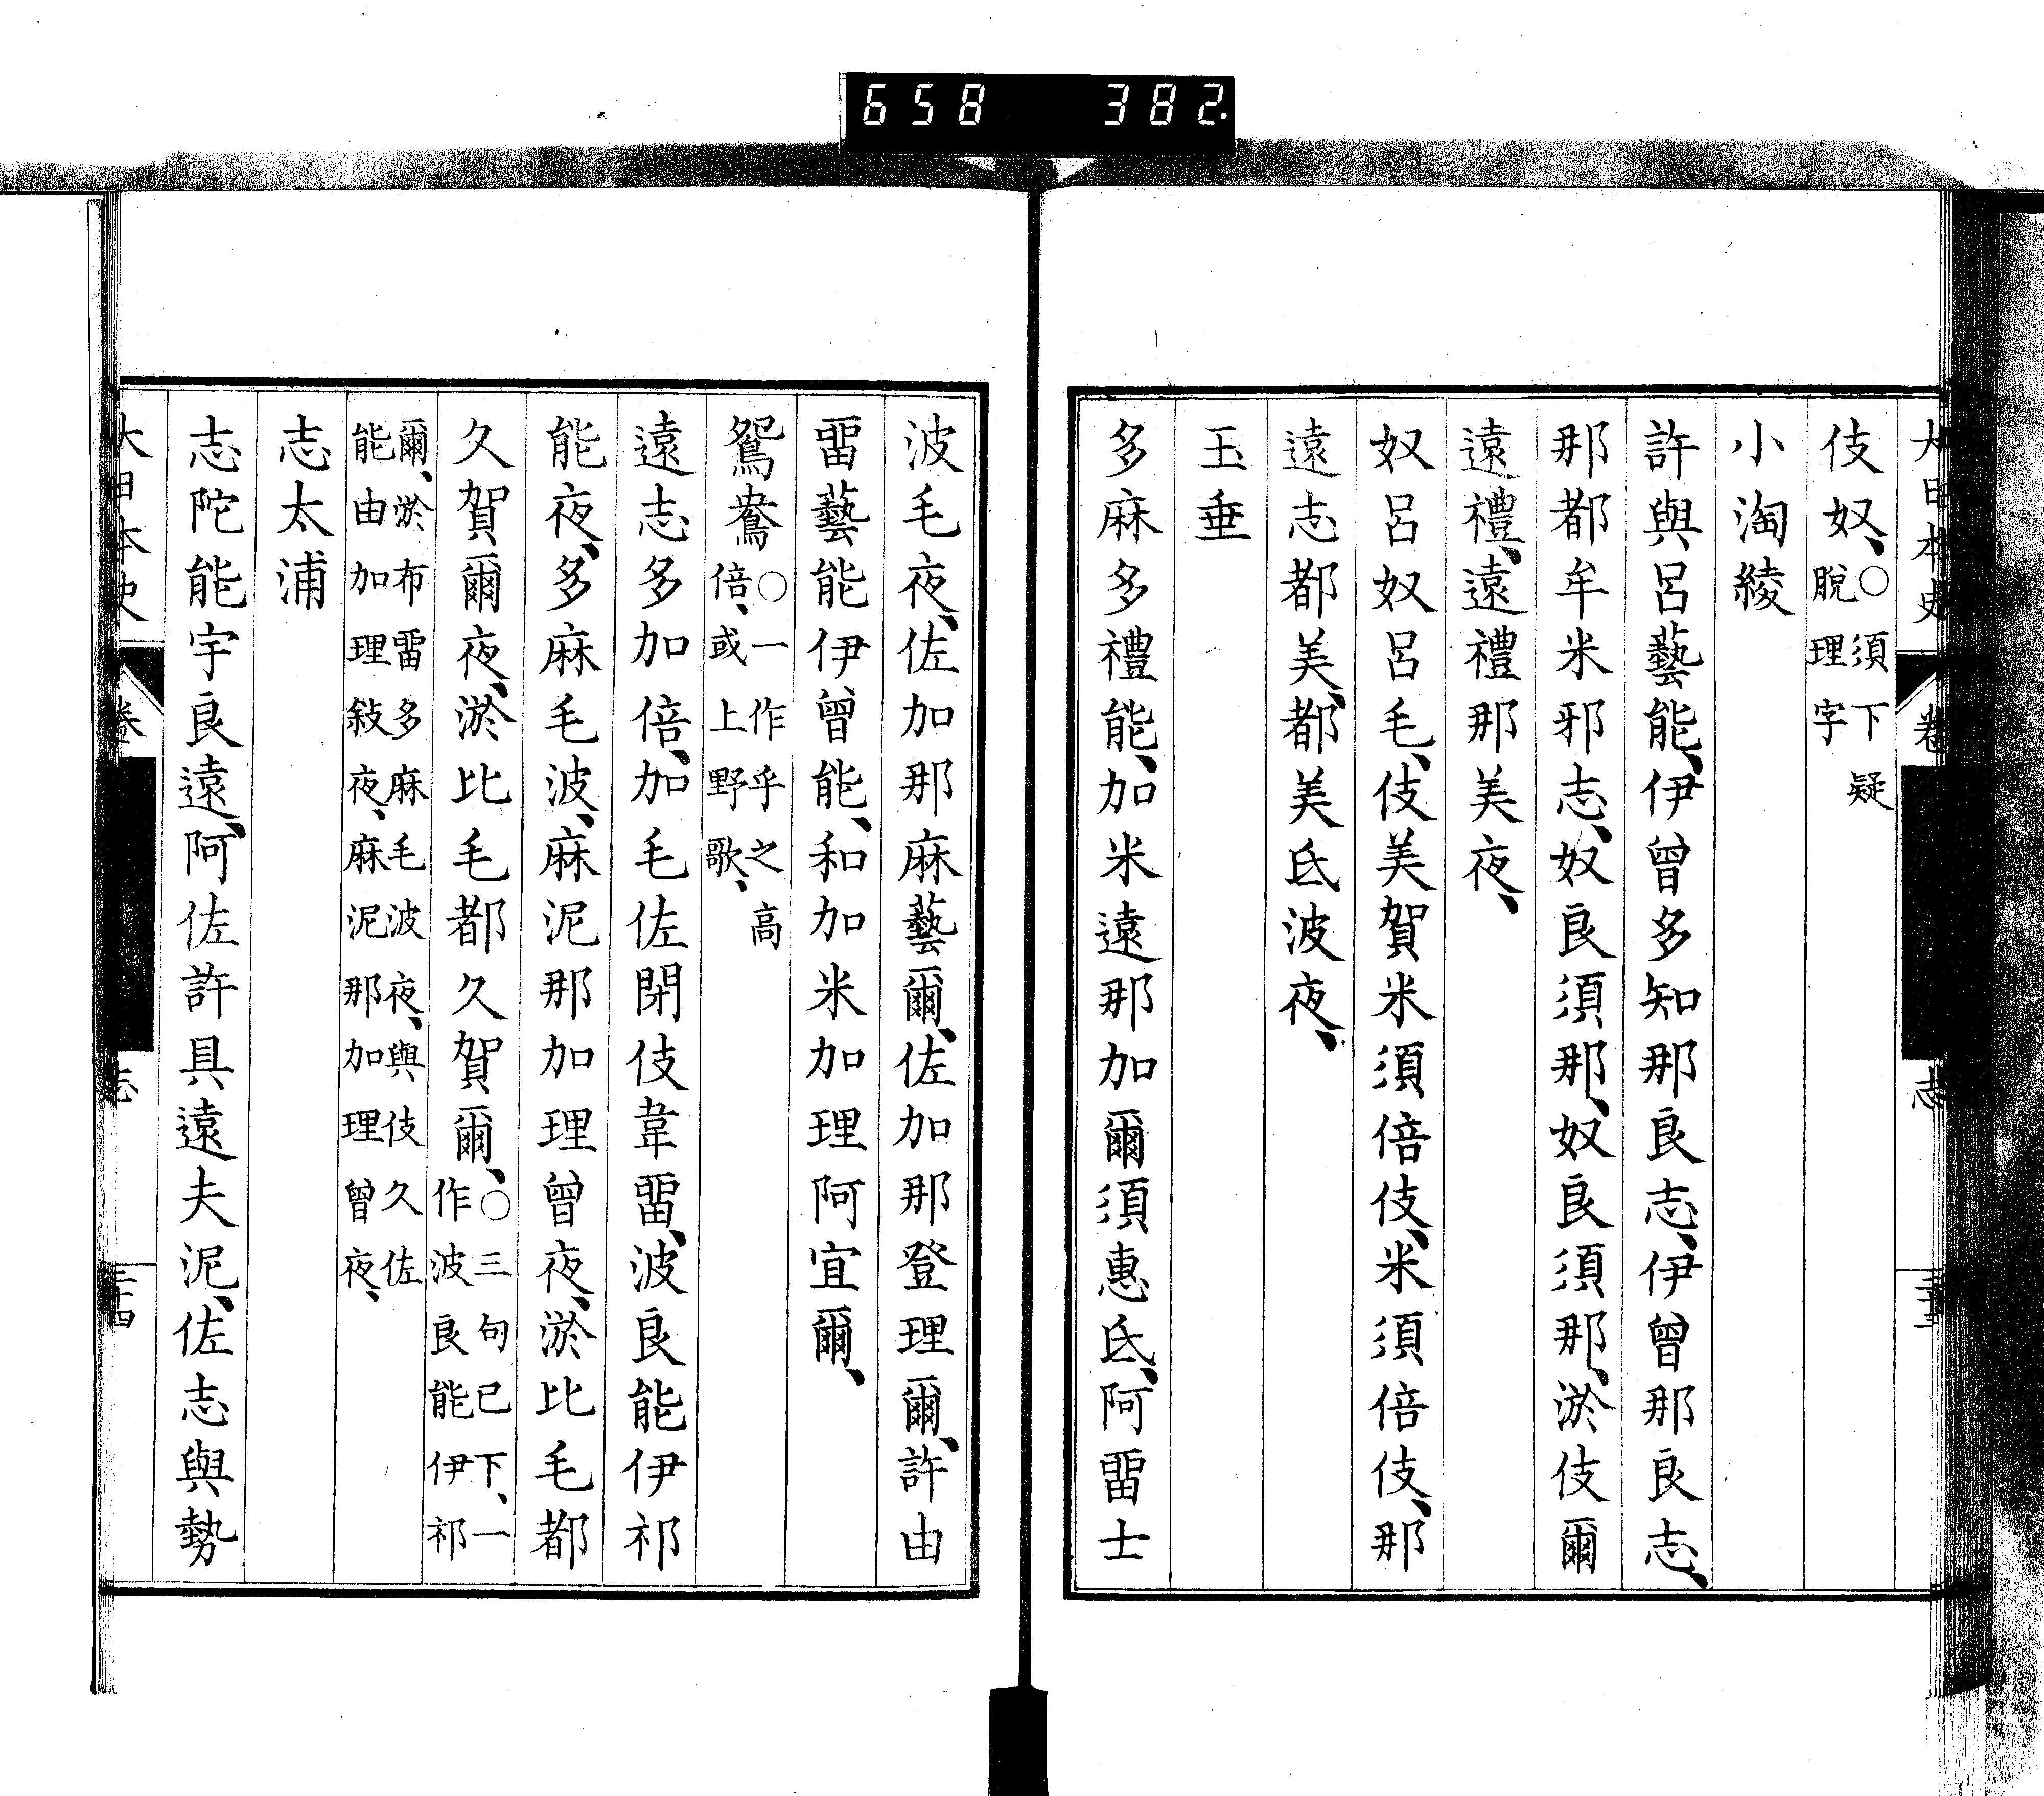 658 382
大日本史 卷 志
伎奴、○須下疑脫理字
小淘綾
許與呂藝能、伊曾多知那良志、伊曾那良志、
那都牟米邪志、奴良須那、奴良須那、淤伎爾
遠禮、遠禮那美夜、
奴呂奴呂毛、伎美賀米須倍伎、米須倍伎、那
遠志都美、都美氐波夜、
玉垂
多麻多禮能、加米遠那加爾須惠氐、阿畱士
波毛夜、佐加那麻藝爾、佐加那登理爾、許由
畱藝能伊曾能、和加米加理阿宜爾、
鴛鴦○一作乎之高倍、或上野歌、
遠志多加倍、加毛佐閇伎韋畱、波良能伊祁
能夜、多麻毛波、麻泥那加理曾夜、淤比毛都
久賀爾夜、淤比毛都久賀爾、○三句已下、一作波良能伊祁
爾、淤布畱多麻毛波夜、與伎久佐能由加理敍夜、麻泥那加理曾夜、
志太浦
志陀能宇良遠、阿佐許具遠夫泥、佐志與勢
大日本史 卷 志 二十四